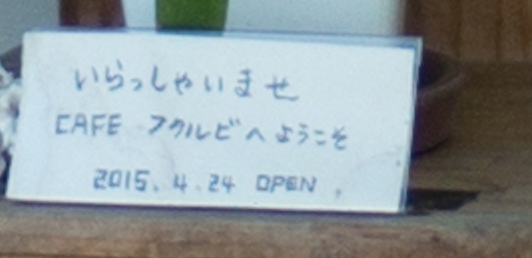 いらっしゃいませ
CAFE アクルビへようこそ
2015. 4. 24 OPEN.